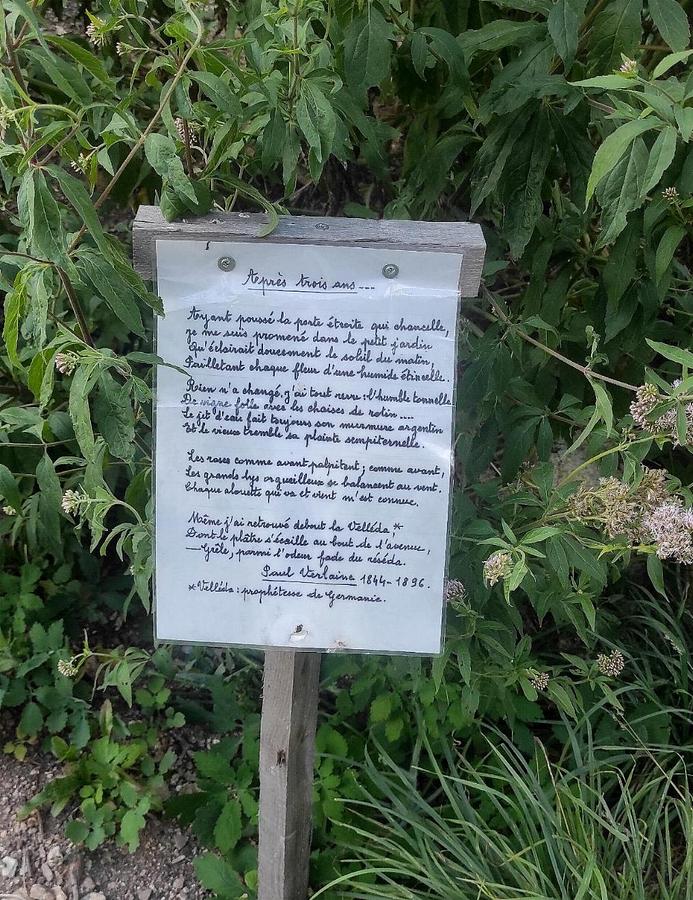 Après trois ans....
Ayant poussé la porte étroite qui chancelle,
je me suis promené dans le petit jardin
Qu'éclairait doucement le soleil du matin,
Pailletant chaque fleur d'une humide étincelle.
Rien n'a changé. j'ai tout revu : l'humble tonnelle
De vigne folle avec les chaises de rotin....
Le jet d'eau fait toujours son murmure argentin
Et le vieux tremble sa plainte sempiternelle.
Les roses comme avant palpitent ; comme avant,
Les grands lys orgueilleux se balancent au vent.
Chaque alouette qui va et vient m'est connue.
Même j'ai retrouvé debout la Velléda,*
Dont le plâtre s'écaille au bout de l'avenue,
—Grêle, parmi l'odeur fade du réséda.
Paul Verlaine 1844-1896.
*Velléda : prophétesse de Germanie.